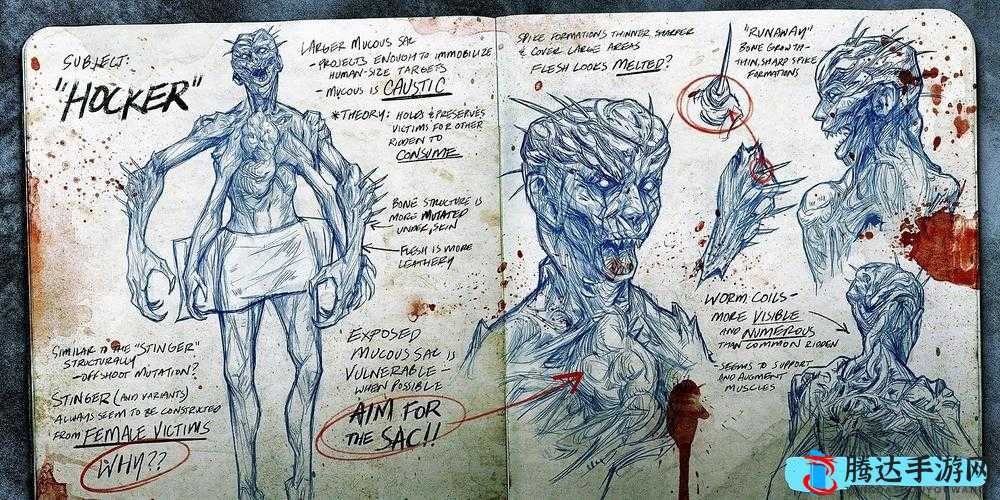 SUBJECT:
"HOCKER"
LARGER MUCOUS SAC
- PROJECTS ENOUGH TO IMMOBILIZE
HUMAN-SIZE TARGETS
- MUCOUS IS CAUSTIC
*THEORY: HOLDS & PRESERVES
VICTIMS FOR OTHER
RIDDEN TO
CONSUME
BONE STRUCTURE IS
MORE MUTATED
UNDER SKIN
FLESH IS MORE
LEATHERY
SIMILAR TO THE "STINGER"
STRUCTURALLY
- OFFSHOOT MUTATION?
STINGER (AND VARIANTS)
ALWAYS SEEM TO BE CONSTRUCTED
FROM FEMALE VICTIMS
WHY??
EXPOSED
MUCOUS SAC IS
VULNERABLE -
WHEN POSSIBLE
AIM FOR
THE SAC!!
SPIKE FORMATIONS THINNER, SHARPER
& COVER LARGE AREAS
FLESH LOOKS MELTED?
"RUNAWAY"
BONE GROWTH -
THIN, SHARP SPIKE
FORMATIONS
WORM COILS -
MORE VISIBLE
AND NUMEROUS
THAN COMMON RIDDEN
- SEEMS TO SUPPORT
AND AUGMENT
MUSCLES
腾达手游网